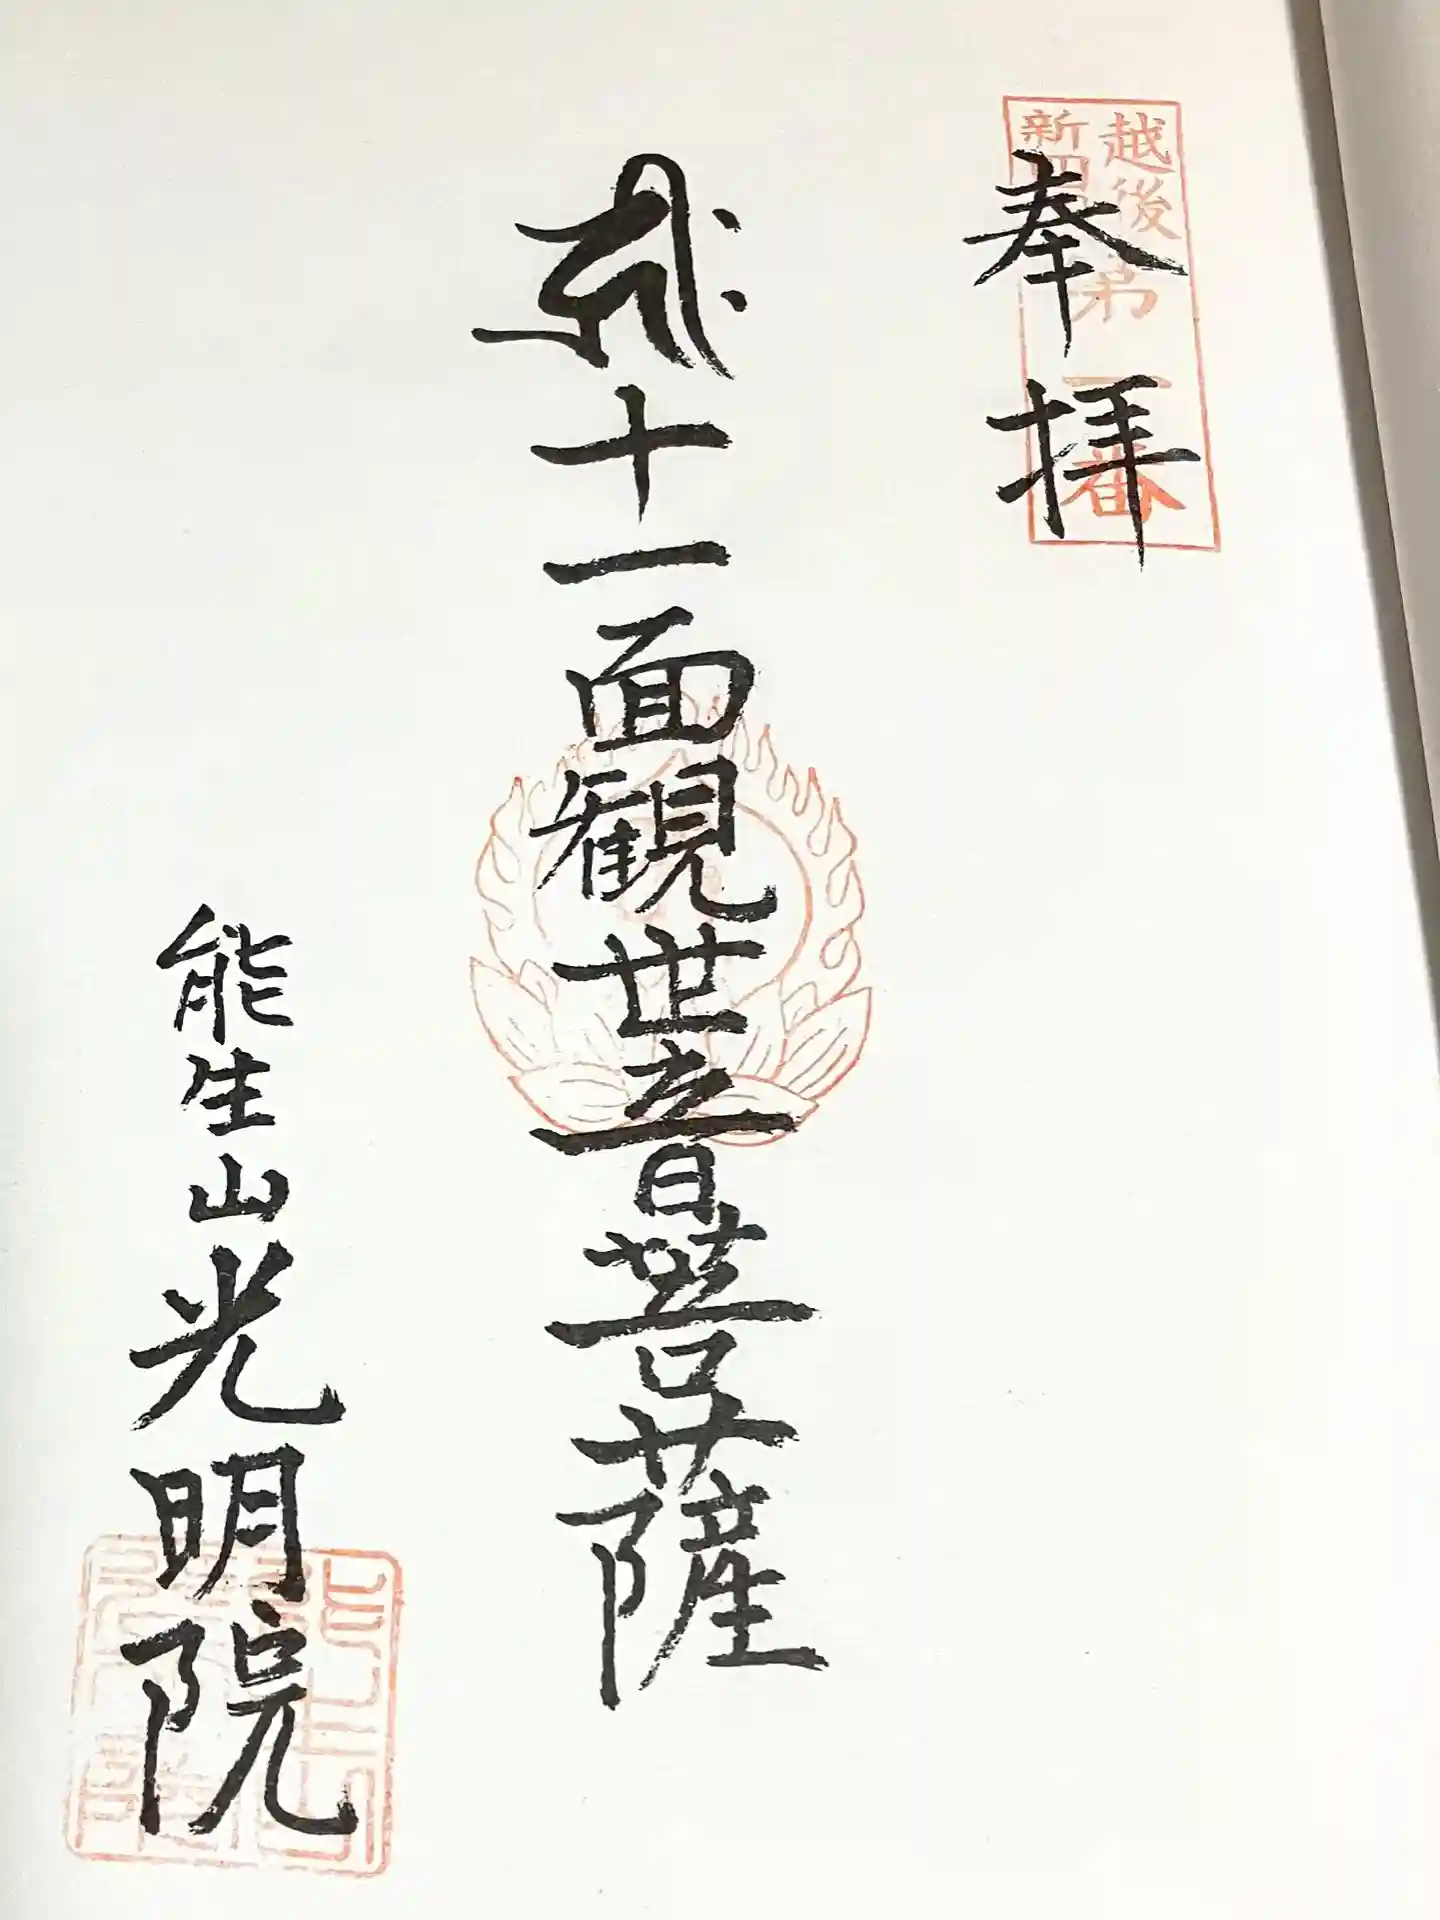 越後
新四国
第一番
奉拝
十一面観世音菩薩
能生山光明院